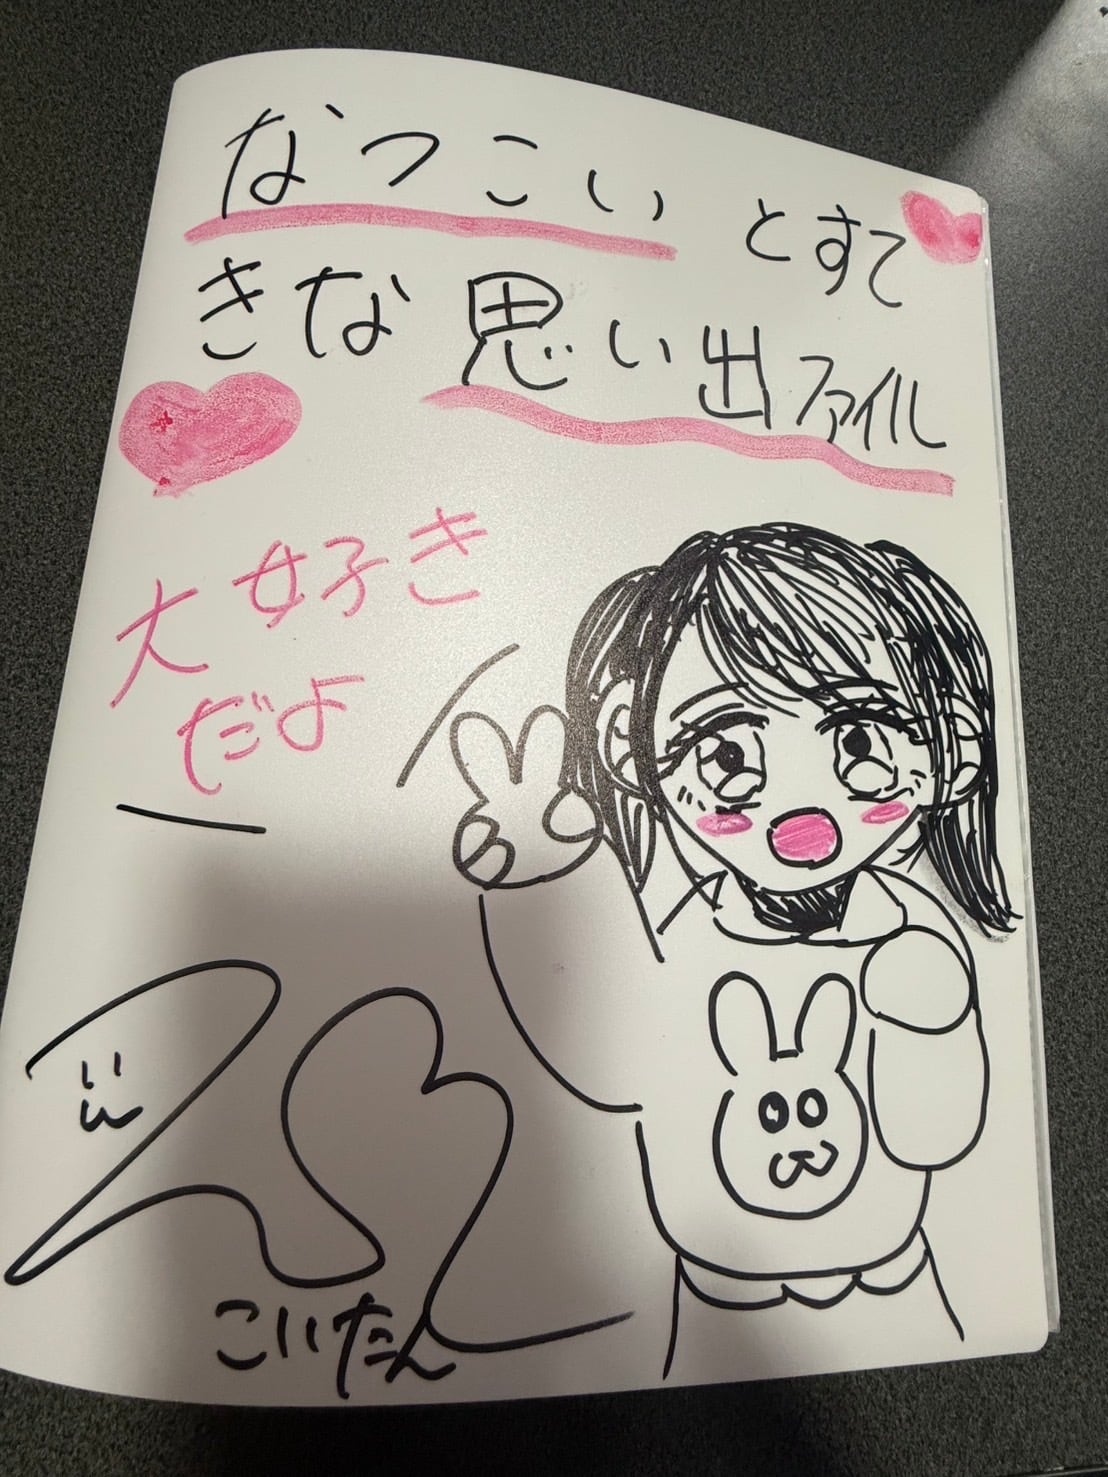 なつこい とすて
きな思い出ファイル
大好き
だよ
こいたん